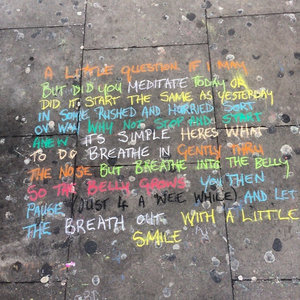 A LITTLE QUESTION IF I MAY
BUT DID YOU MEDITATE TODAY OR
DID IT START THE SAME AS YESTERDAY
IN SOME RUSHED AND HURRIED SORT
OV WAY WHY NOT STOP AND START
ANEW ITS SIMPLE HERES WHAT
TO DO BREATHE IN GENTLY THRU
THE NOSE BUT BREATHE INTO THE BELLY
SO THE BELLY GROWS YOU THEN
PAUSE (JUST 4 A WEE WHILE) AND LET
THE BREATH OUT WITH A LITTLE
SMILE